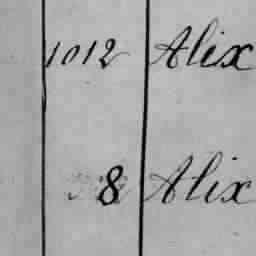 1012 Alix
8 Alix